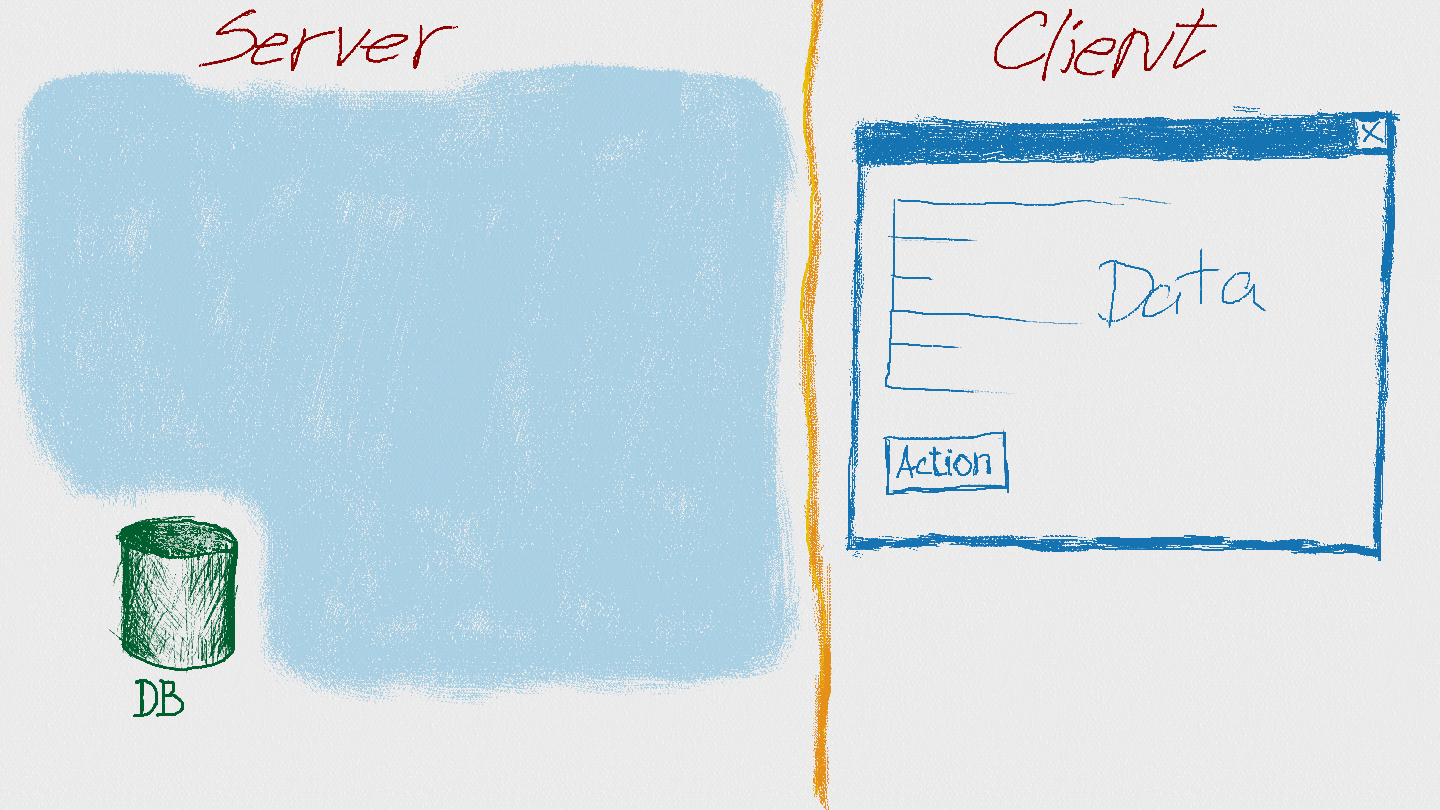 Server
Client
X
Data
Action
DB